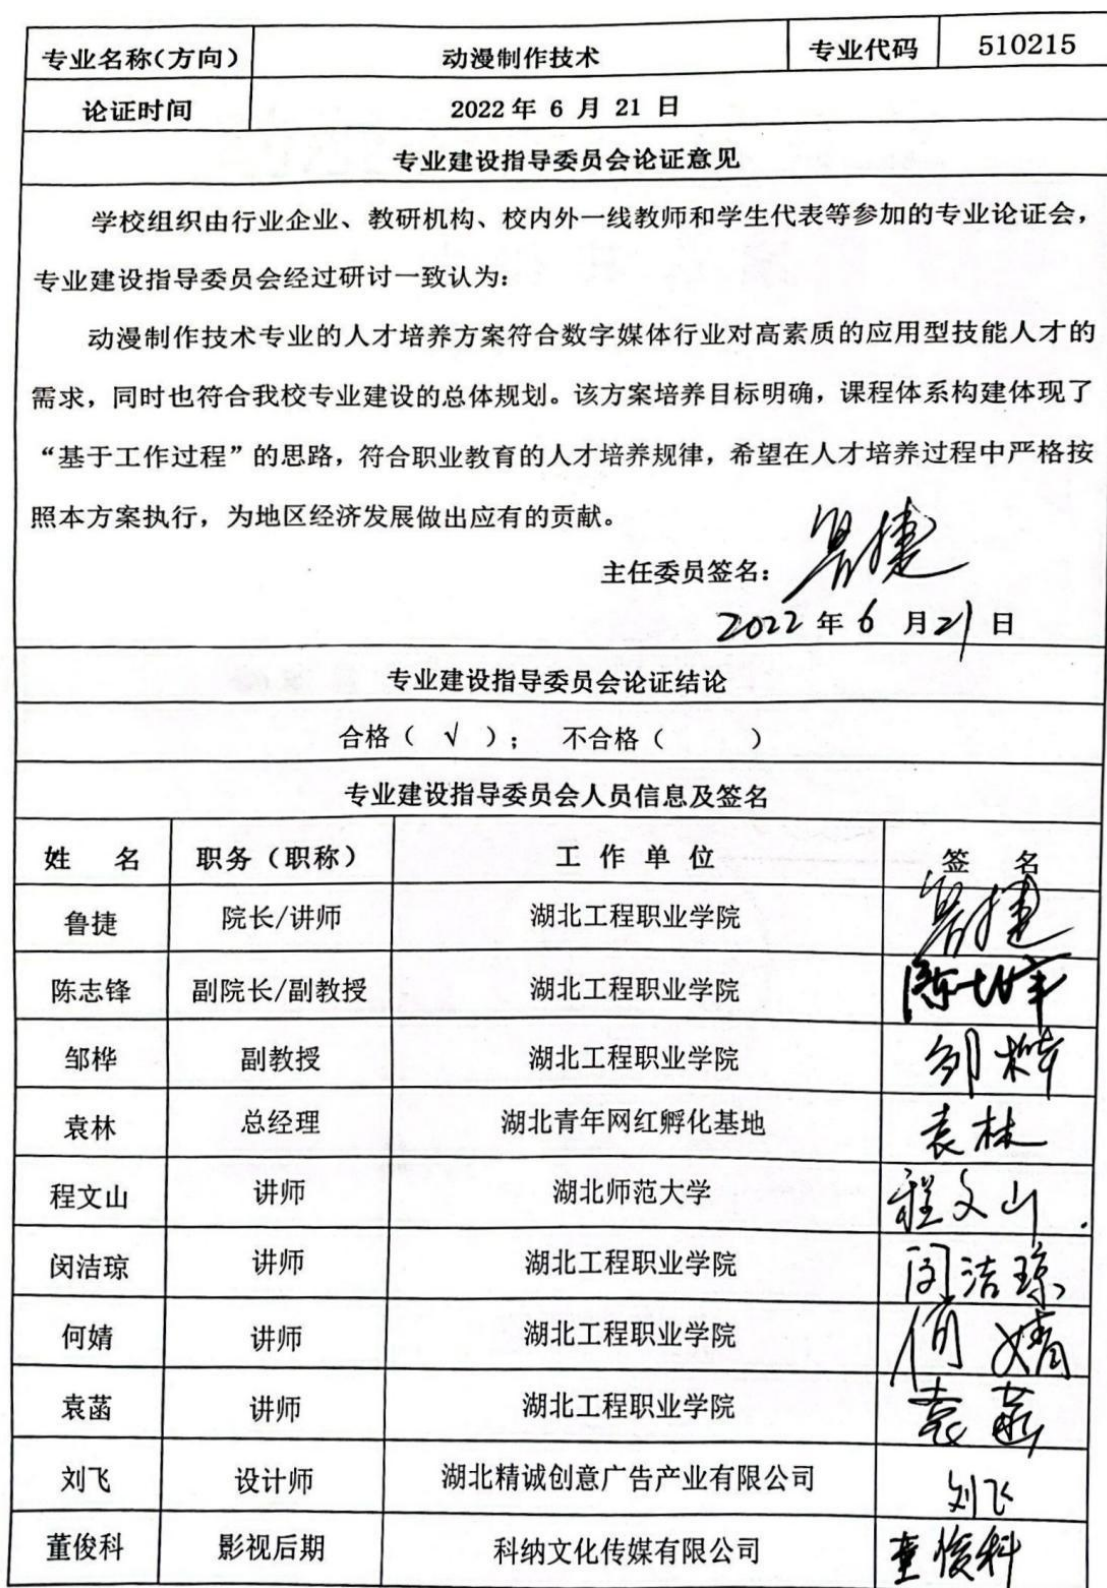 专业名称(方向) 动漫制作技术 专业代码 510215
论证时间 2022年 6 月 21 日
专业建设指导委员会论证意见
学校组织由行业企业、教研机构、校内外一线教师和学生代表等参加的专业论证会，
专业建设指导委员会经过研讨一致认为：
动漫制作技术专业的人才培养方案符合数字媒体行业对高素质的应用型技能人才的
需求，同时也符合我校专业建设的总体规划。该方案培养目标明确，课程体系构建体现了
“基于工作过程”的思路，符合职业教育的人才培养规律，希望在人才培养过程中严格按
照本方案执行，为地区经济发展做出应有的贡献。
主任委员签名： 鲁捷
2022年 6 月 21 日
专业建设指导委员会论证结论
合格（ √ ）； 不合格（ ）
专业建设指导委员会人员信息及签名
姓 名 职务（职称） 工 作 单 位 签 名
鲁捷 院长/讲师 湖北工程职业学院 鲁捷
陈志锋 副院长/副教授 湖北工程职业学院 陈志锋
邹桦 副教授 湖北工程职业学院 邹桦
袁林 总经理 湖北青年网红孵化基地 袁林
程文山 讲师 湖北师范大学 程文山
闵洁琼 讲师 湖北工程职业学院 闵洁琼
何婧 讲师 湖北工程职业学院 何婧
袁菡 讲师 湖北工程职业学院 袁菡
刘飞 设计师 湖北精诚创意广告产业有限公司 刘飞
董俊科 影视后期 科纳文化传媒有限公司 董俊科